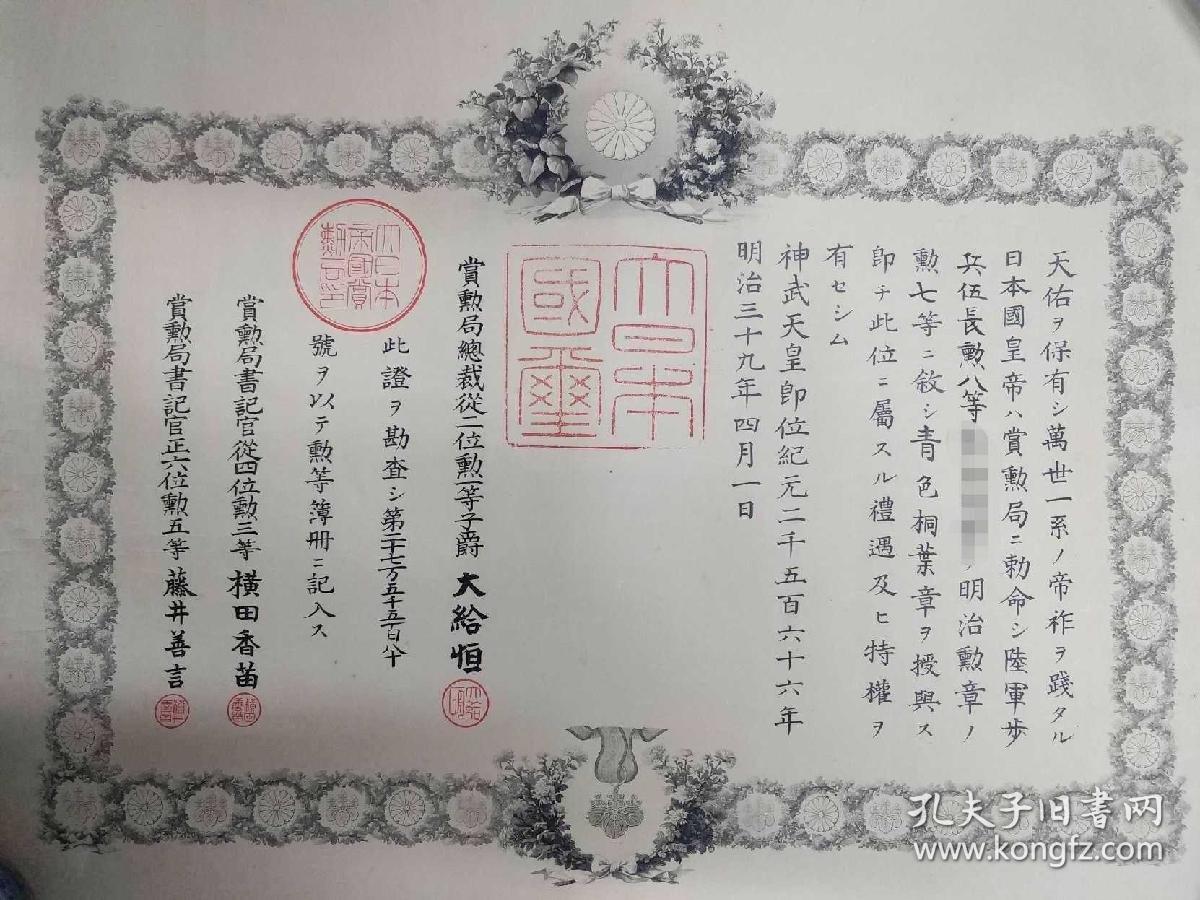 天佑ヲ保有シ萬世一系ノ帝祚ヲ踐タル
日本國皇帝ハ賞勲局ニ勅命シ陸軍歩
兵伍長勲八等 ノ明治勲章ノ
勲七等ニ敘シ青色桐葉章ヲ授與ス
即チ此位ニ屬スル禮遇及ヒ特權ヲ
有セシム
神武天皇即位紀元二千五百六十六年
明治三十九年四月一日
大日本
國璽
賞勲局總裁從二位勲一等子爵 大給恒
此證ヲ勘査シ第二十七万五千五百八十
號ヲ以テ勲等簿冊ニ記入ス
大日本
帝國賞
勲局印
賞勲局書記官從四位勲三等 横田香苗
賞勲局書記官正六位勲五等 藤井善言
孔夫子旧书网
www.kongfz.com